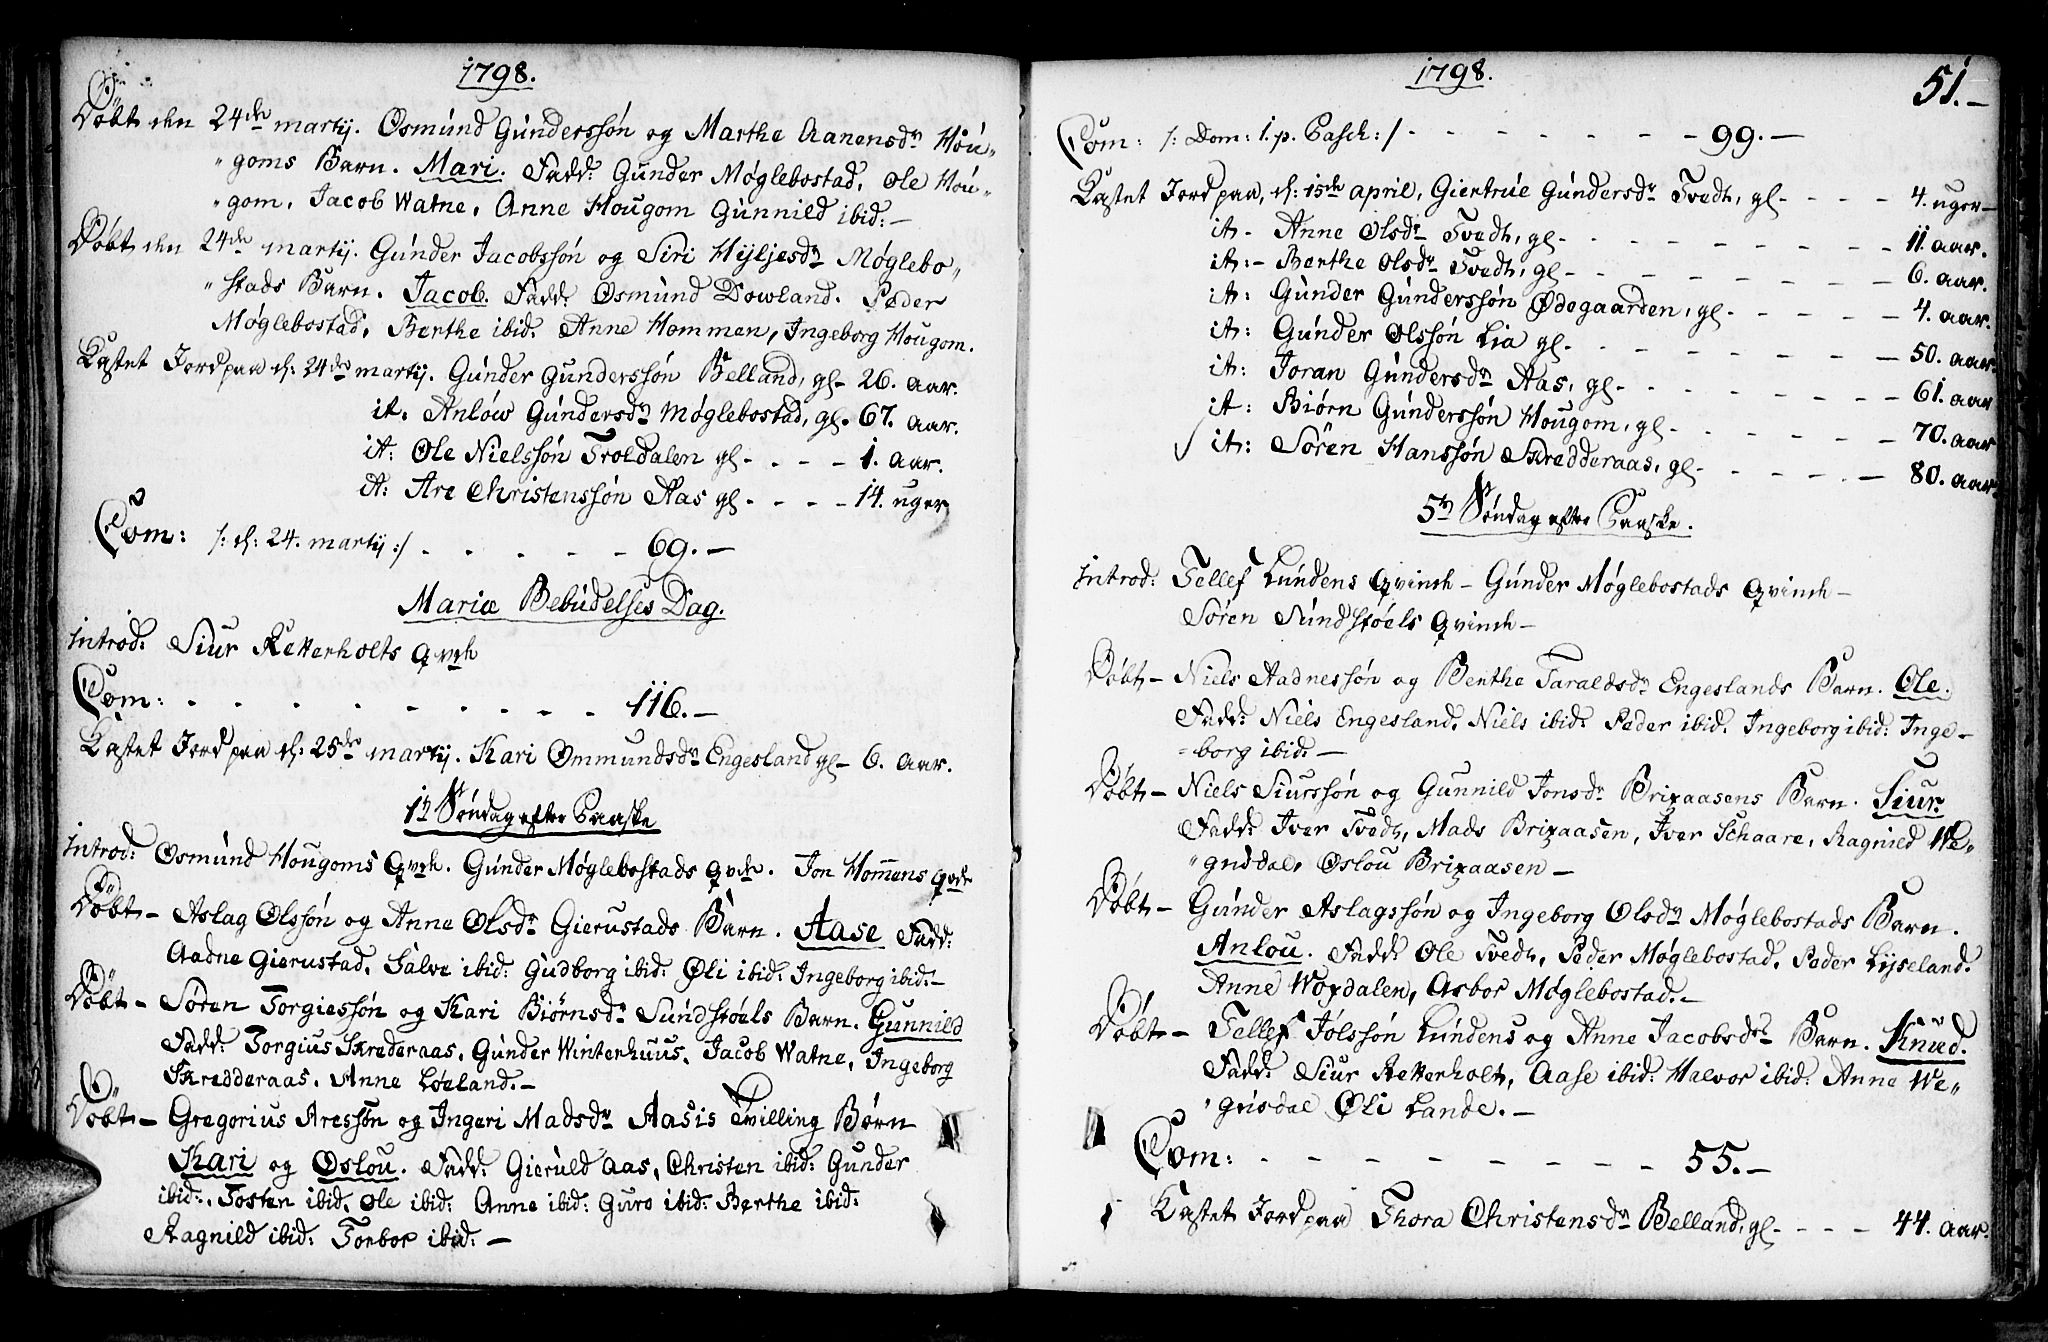 1798.
Døbt den 24de martij. Osmünd Gündersson og Marthe Aanensdr Hoü„
„goms Barn. Mari. Fadd: Günder Møglebostad, Ole Hoü„
„gom, Jacob Watne, Anne Hoügom Günnild ibid:—
Døbt den 24de martij. Günder Jacobssøn og Siri Hyljesdr Møglebo„
„stads Barn. Jacob. Fadd: Osmünd Dowland. Peder
Møglebostad, Berthe ibid. Anne Hommen, Ingeborg Hoügom.
Kastet Jord paa d: 24de martij. Günder Gunderssøn Belland, gl- 26. aar.
it. Anlów Gündersdr Møglebostad, gl. 67. aar.
it: Ole Nielssøn Troldalen gl- - - - 1. aar.
it: Are Christenssøn Aas gl- - - - 14. uger
Com: /: d: 24. martij :/ - - - - - 69.—
Mariæ Bebüdelses Dag.
Introd. Siur Retterholts Qvde
Com: - - - - - - - - - 116.—
Kastet Jord paa d: 25de martij. Kari Ommundsdr Engesland gl- 6. aar.
1te Søndag efter Paaske
Introd: Osmünd Hoügoms Qvde. Günder Møglebostads Qvde. Jon Hom̄ens Qvde
Døbt — Aslag Olssøn og Anne Olsdr Gierustads Barn. Aase Fadd:
Aadne Gierustad, Salve ibid: Güdborg ibid: Øli ibid: Ingeborg ibid:—
Døbt — Søren Torgiessøn og Kari Biørnsdr Sündstøels Barn. Gunnild
Fadd: Torgius Skrederaas, Günder Winterhuus, Jacob Watne, Ingeborg
Skredderaas, Anne Løeland.—
Døbt — Gregorius Aressøn og Ingeri Madsdr Aasis Tvilling Børn
Kari og Oslou. Fadd: Gieruld Aas, Christen ibid: Gunder
ibid: Tosten ibid. Ole ibid: Anne ibid: Guro ibid: Berthe ibid:
Ragnild ibid: Torbor ibid:—
1798.
51.—
Com: /: Dom: 1. p. Pasch: / - - - - - - - 99.—
Kastet Jord paa, d: 15de april, Giertrüe Gündersdr Tvedt, gl- - - - 4. uger—
it- Anne Olsdr Tvedt, gl- - - - - - - - - 11. aar.
it:- Berthe Olsdr Tvedt, gl- - - - - - - - 6. aar.
it: Günder Günderssøn Ødegaarden, gl- - - - - 4. aar.
it: Günder Olssøn Lia gl- - - - - - - - 50. aar
it: Joran Gündersdr Aas, gl- - - - - - - 61. aar
it: Biørn Günderssøn Hoügom, gl- - - - - - 70. aar
it: Søren Hanssøn Skredderaas, gl- - - - - - 80. aar
5te Søndag efter Paaske.
Introd: Tellef Lündens Qvinde — Günder Møglebostads Qvinde —
Søren Sündstøels Qvinde —
Døbt — Niels Aadnessøn og Benthe Taraldsdr Engeslands Barn. Ole.
Fadd: Niels Engesland. Niels ibid: Peder ibid. Ingeborg ibid: Inge-
-borg ibid:—
Døbt — Niels Siurssøn og Gunnild Jonsdr Brixaasens Barn. Siur.
Fadd: Iver Tvedt, Mads Brixaasen, Iver Schaare, Ragnild We„
„gusdal, Oslou Brixaasen —
Døbt — Günder Aslagssøn og Ingeborg Olsdr Møglebostads Barn.
Anlou. Fadd: Ole Tvedt, Peder Møglebostad, Peder Lyseland.
Anne Woxdalen, Asbor Møglebostad.—
Døbt — Tellef Jølssøn Lündens og Anne Jacobsdr Barn. Knüd.
Fadd: Siur Retterholt, Aase ibid: Halvor ibid: Anne We„
„gusdal Øli Lande.—
Com: - - - - - - - - - 55.—
Kastet Jord paa Thora Christensdr Belland, gl- - - - 44. aar.